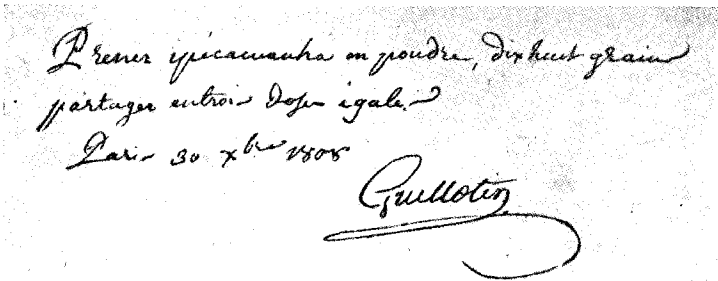 Prenez ypecacuanha en poudre, dix huit grains
partager en trois doses égales
Paris 30 xbre 1808
Guillotin